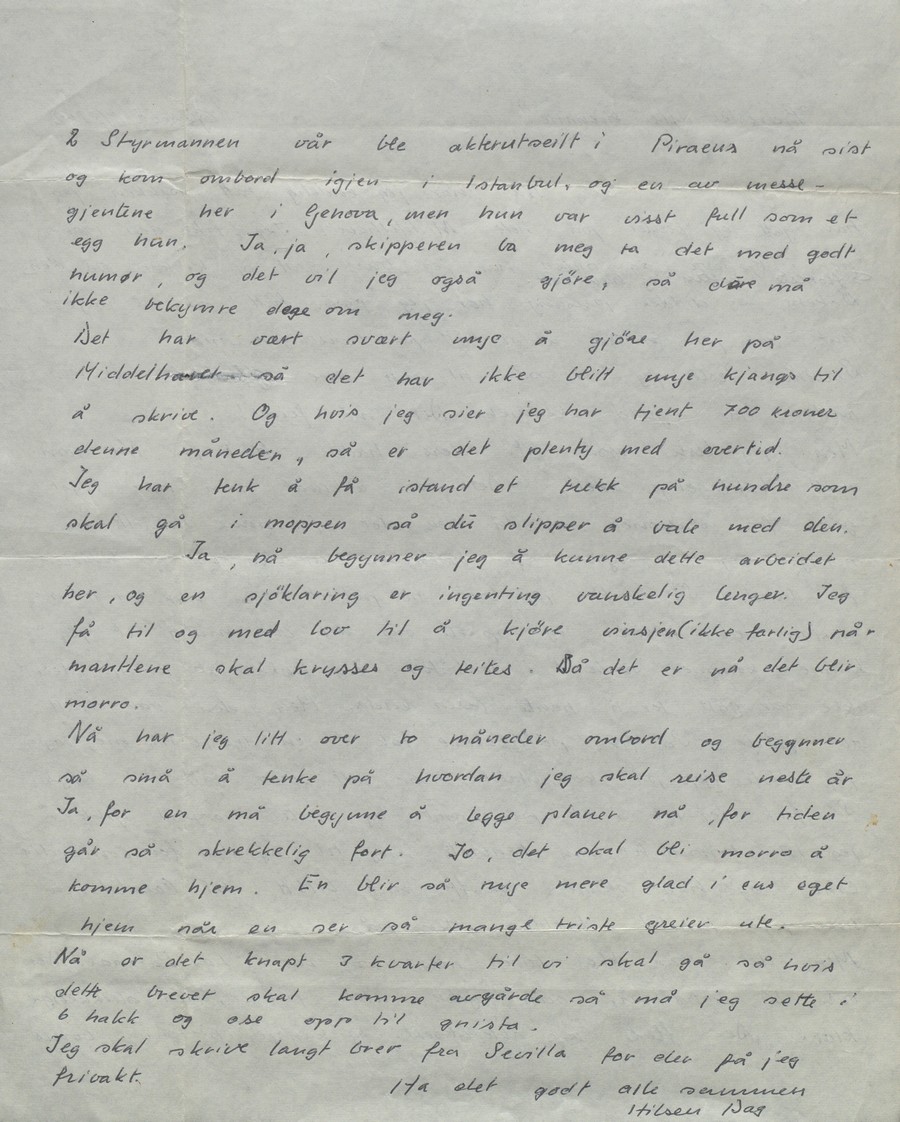 2 Styrmannen vår ble akterutseilt i Piraeus nå sist
og kom ombord igjen i Istanbul, og en av messe-
gjentene her i Genova, men hun var visst full som et
egg han. Ja, ja, skipperen ba meg ta det med godt
humør, og det vil jeg også gjöre, så dåre må
ikke bekymre dege om meg.
Det har vært svært mye å gjöre her på
Middelhavet så det har ikke blitt mye kjangs til
å skrive. Og hvis jeg sier jeg har tjent 700 kroner
denne måneden, så er det plenty med overtid.
Jeg har tenk å få istand et trekk på hundre som
skal gå i moppen så du slipper å vale med den.
Ja, nå begynner jeg å kunne dette arbeidet
her, og en sjöklaring er ingenting vanskelig lenger. Jeg
få til og med lov til å kjöre vinsjen (ikke farlig) når
mantlene skal krysses og teites. Så det er nå det blir
morro.
Nå har jeg litt over to måneder ombord og begynner
så små å tenke på hvordan jeg skal reise neste år
Ja, for en må begynne å legge planer nå, for tiden
går så skrekkelig fort. Jo, det skal bli morro å
komme hjem. En blir så mye mere glad i ens eget
hjem når en ser så mange triste greier ute.
Nå er det knapt 3 kvarter til vi skal gå så hvis
dette brevet skal komme avgårde så må jeg sette i
6 hakk og ose opp til gnista.
Jeg skal skrive langt brev fra Sevilla for der på jeg
frivakt.
Ha det godt alle sammen
Hilsen Dag